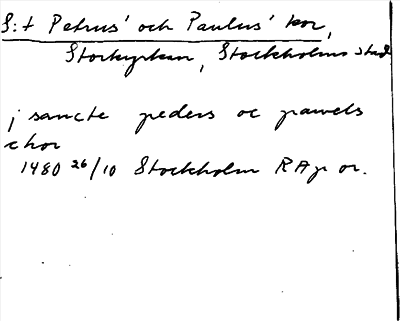 S:t Petrus' och Paulus' kor,
Storkyrkan, Stockholms stad
j sancte peders oc pawels
chor
1480 26/10 Stockholm RAp or.